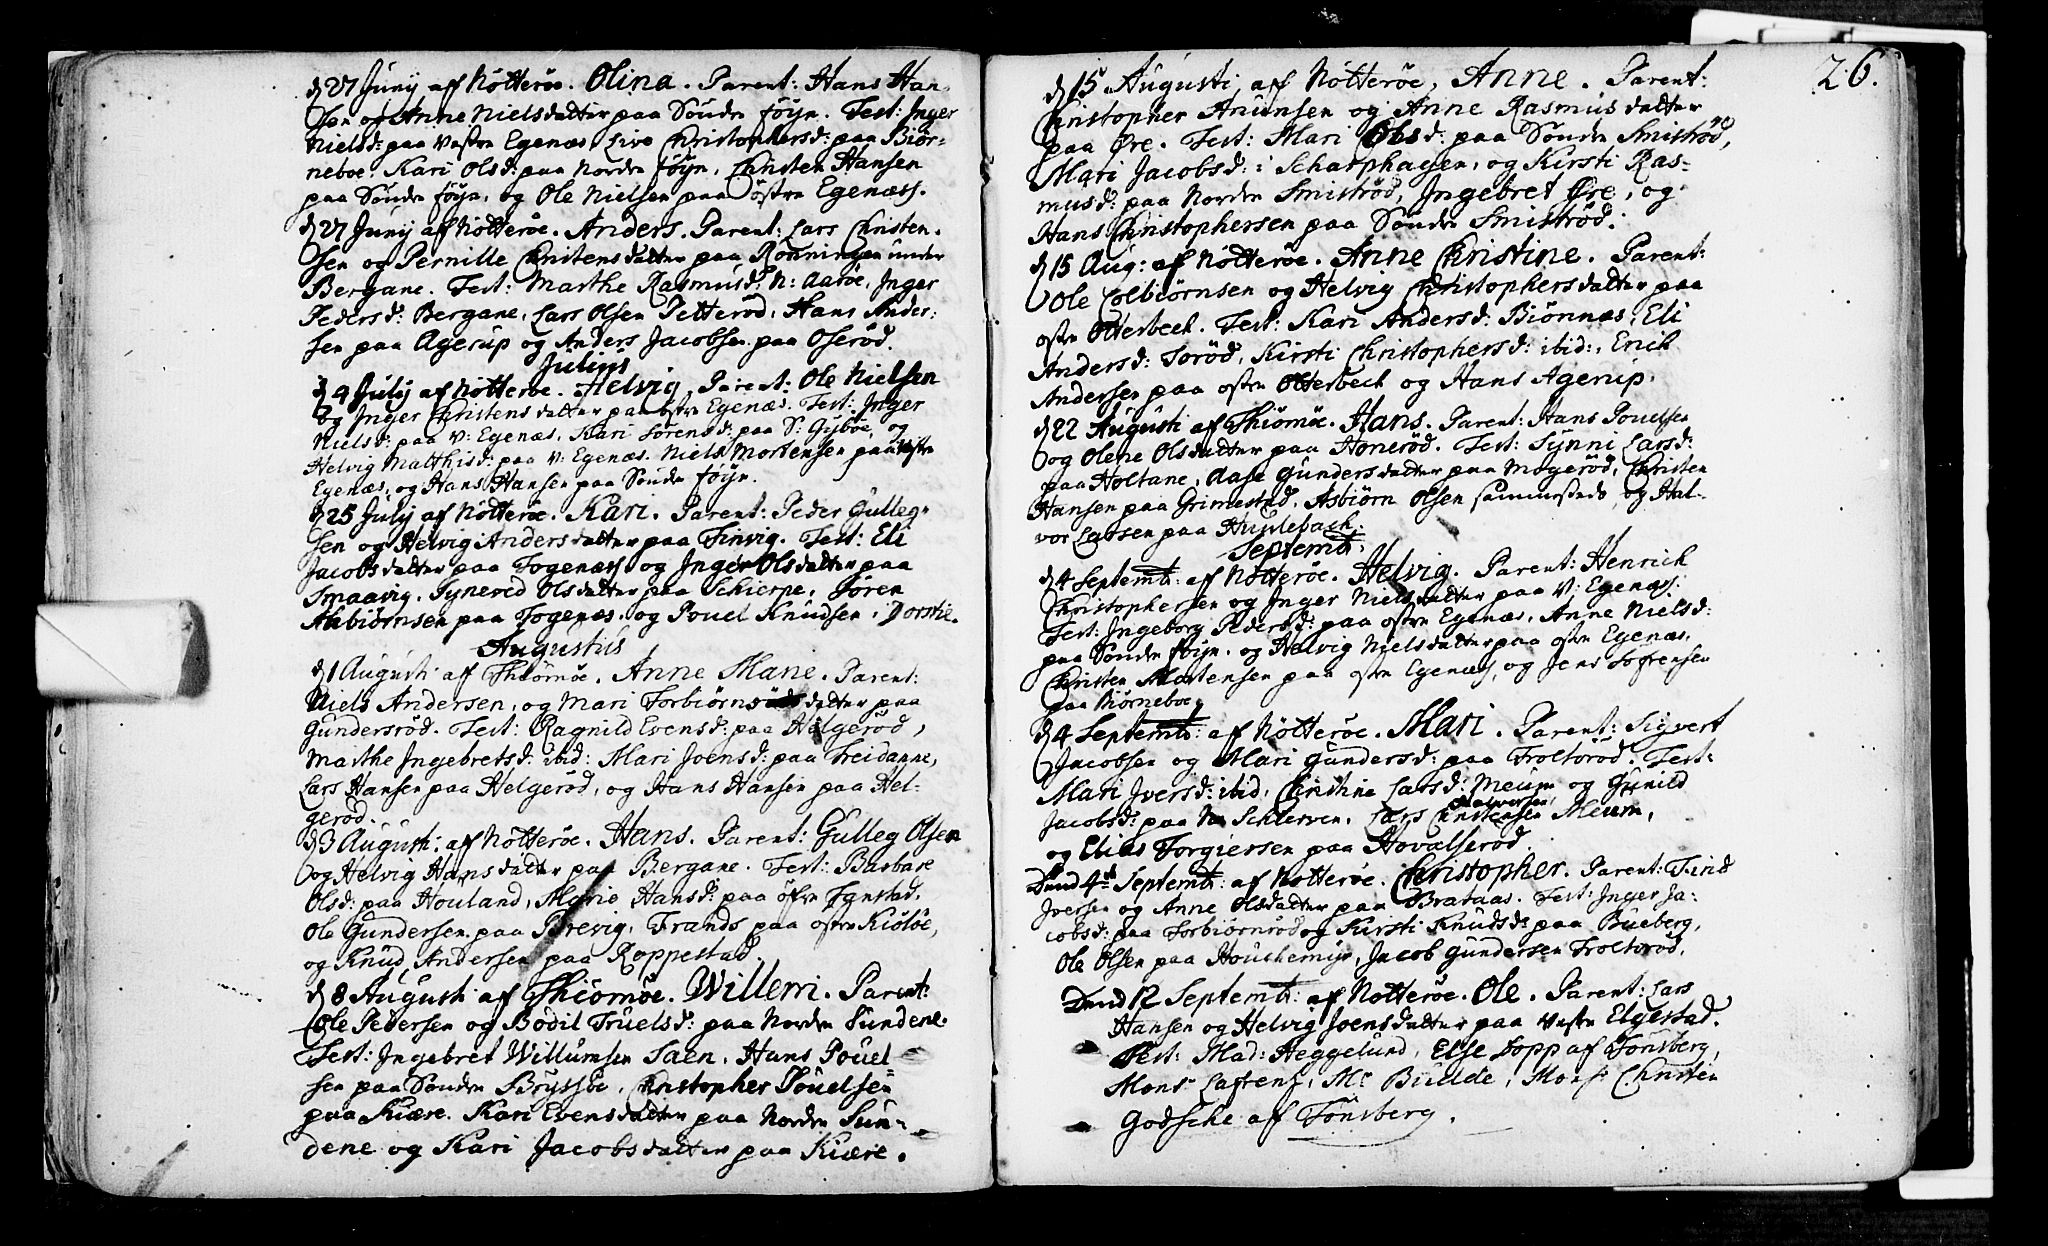 d 27 Junij af Nötteröe. Olina. Parent: Hans Han-
sen og Anne Nielsdatter paa Söndre föyn. Test: Inger
Nielsd: paa Vestre Egenæs, Live Christophersd: paa Biör-
neboe. Kari Olsd: paa Nordre föyn, Christen Hansen
paa Söndre föyn, og Ole Nielsen paa östre Egenæss.
d 27 Junij af Nötteröe. Anders. Parent: Lars Christen-
sen og Pernille Christensdatter paa Rönningen under
Bergane. Test: Marthe Rasmusd: N: Aaröe, Inger
Pedersd: Bergane, Lars Olsen Petteröd, Hans Ander-
sen paa Agerup og Anders Jacobsen paa Oseröd.
Julius
d 4 Julij af Nötteröe. Helvig. Parent: Ole Nielsen
og Inger Christensdatter paa östre Egenæs. Test: Inger
Nielsd: paa V: Egenæs, Kari Sörensd: paa S: Gyböe, og
Helvig Matthisd: paa V: Egenæs. Niels Mortensen paa Vestre
Egenæs, og Hans Hansen paa Söndre föyn.
d 25 Julij af Nötteröe. Kari. Parent: Peder Gulleg-
sen og Helvig Andersdatter paa Finvig. Test: Eli
Jacobsdatter paa Togenæss og Inger Olsdatter paa
Smaavig. Synered Olsdatter paa Schierpe. Sören
Abbiörnsen paa Togenæs, og Pouel Knudsen, Dorstie.
Augustus
d 1 Augusti af Thiömöe. Anne Marie. Parent:
Niels Andersen, og Mari Torbiörnsdatter paa
Gundersröd. Test: Ragnild Evensd: paa Helgeröd,
Marthe Ingebretsd: ibid: Mari Joensd: paa Treidanne,
Lars Hansen paa Helgeröd, og Hans Hansen paa Hel-
geröd.
d 3 Augusti: af Nötteröe. Hans. Parent: Gulleg Olsen
og Helvig Hansdatter paa Bergane. Test: Barbare
Olsd: paa Houland, Marie Hansd: paa öfre Fanstad.
Ole Gundersen paa Brevig, Frands paa östre Kiölöe,
og Knud Andersen paa Roppestad.
d 8 Augusti af Thiömöe. Willem. Parent:
Ole Pedersen og Bodil Truelsd: paa Nordre Sundene.
Test: Ingebret Willumsen Saen, Hans Pouel-
sen paa Söndre Bryssöe, Christopher Pouelsen
paa Kiære. Kari Evensdatter paa Nordre Sun-
dene og Kari Jacobsdatter paa Kiære.
26.
d 15 Augusti, af Nötteröe, Anne. Parent:
Christopher Anunsen og Anne Rasmusdatter
paa Öre. Test: Mari Olsd: paa Söndre Smiströd,
Mari Jacobsd: i Scharphagen, og Kirsti Ras-
musd: paa Nordre Smiströd, Ingebret Öre, og
Hans Christophersen paa Söndre Smiströd.
d 15 Aug: af Nötteröe. Anne Christine. Parent:
Ole Colbiörnsen og Helvig Christophersdatter paa
östre Otterbech. Test: Kari Andersd: Biönnæs, Eli
Andersd: Soröd, Kirsti Christophersd: ibid:, Erich
Andersen paa östre Otterbech og Hans Agerup.
d 22 Augusti af Thiömöe. Hans. Parent: Hans Pouelsen
og Olene Olsdatter paa Honeröd. Test: Synni Larsd:
paa Holtane, Aase Gundersdatter paa Mogeröd, Christen
Hansen paa Grimestad, Asbiörn Olsen sammesteds, og Hal-
vor Larsen paa Huulebach.
Septemb:
d 4 Septemb: af Nötteröe. Helvig. Parent: Henrich
Christophersen og Inger Nielsdatter paa V: Egenæs:
Test: Ingeborg Pedersd: paa östre Egenæs, Anne Nielsd:
paa Söndre föyn, og Helvig Nielsdatter paa östre Egenæs.
Christen Mortensen paa östre Egenæs, og Jens Sörensen
paa Biörneboe.
d 4 Septemb: af Nötteröe. Mari. Parent: Sigvert
Jacobsen og Mari Gundersd: paa Troltöröd. Test:
Mari Iversd: ibid, Christine Larsd: Meum og Gunild
Jacobsd: paa Schlerven. Lars Christensen Meum,
Halversen
og Elias Torgiersen paa Hovalseröd.
Dend 4de Septemb: af Nötteröe. Christopher. Parent:
Iversen og Anne Olsdatter paa Brataas. Test: Inger Ja-
cobsd: paa Torbiörnröd og Kirsti Knudsd: paa Bueberg,
Ole Olsen paa Houchemyr, Jacob Gundersen Troltoröd.
Dend 12 Septemb: af Nötteröe. Ole. Parent: Lars
Hansen og Helvig Joensdatter paa Vestre Elgestad.
Test: Mad: Heggelund, Else Lopp af Tönsberg,
Monsr Lafrens, Mr Budde, Monsr Christen
Godsche af Tönsberg.